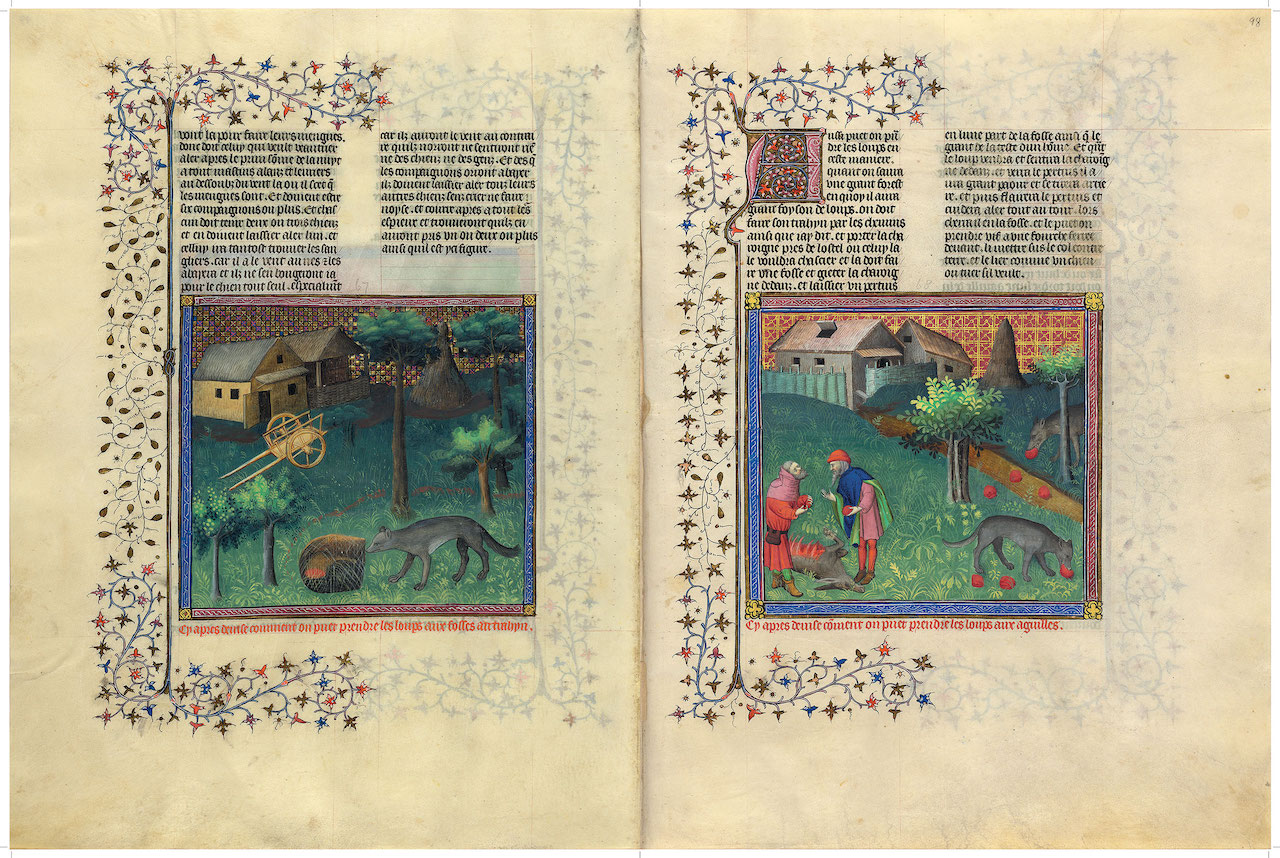 vont la pour faire leurs mengues.
donc doit celuy qui veult veautrer
aler apres le prim sõme de la nuyt
a tout mastins alanz et levriers
au dessoubz du vent la ou il scet q̃
les mengues sont. Et doivent estre
six compaignons ou plus. Et chas
cun doit tenir deux ou trois chiens
et en doivent laissier aler lun. et
celluy ira tantost trouver les san
gliers. car il a le vent au nes et les
abayera et ilz ne sen bougeront ia
pour le chien tout seul. especialmẽt
car ilz auront le vent au contrai
re quilz norront ne sentiront ne
ne des chiens ne des genz. Et des q̃
les compaignons orront abayer
ilz doivent laissier aler touz leurs
autres chiens senz crier ne faire
noyse. et courre apres a tout les
espieux et trouveront quilz en
auront pris un ou deux ou plus
ainsi quil est ycy figure.
Cy apres devise comment on puet prendre les loups aux fosses au trahyn.
98
Aussi puet on prẽ
dre les loups en
ceste maniere.
quant on saura
une grant forest
en quoy il aura
grant foyson de loups. on doit
faire son trahyn par les chemins
ainsi que iay dit. et porter la cha
roigne pres de lostel ou celluy la
le vouldra chassier et la doit fai
re une fosse et gieter la charoig
ne dedanz. et laissier un pertuis
en lune part de la fosse ainsi q̃ le
giant de la teste dun hõme. Et quãt
le loup vendra et sentira la charoig
ne dedanz. et verra le pertuis il a
ura grant paour et se tirera arrie
re. et puis flairera le pertuis et
cuidera aler tout au tour. lors
cherra il en la fosse. et le puet on
prendre vif a une fourche ferree
devant. li mettre sus le col contre
terre. et le lier comme un chien
ou tuer sil veult.
Cy apres devise cõment on puet prendre les loups aux aguilles.